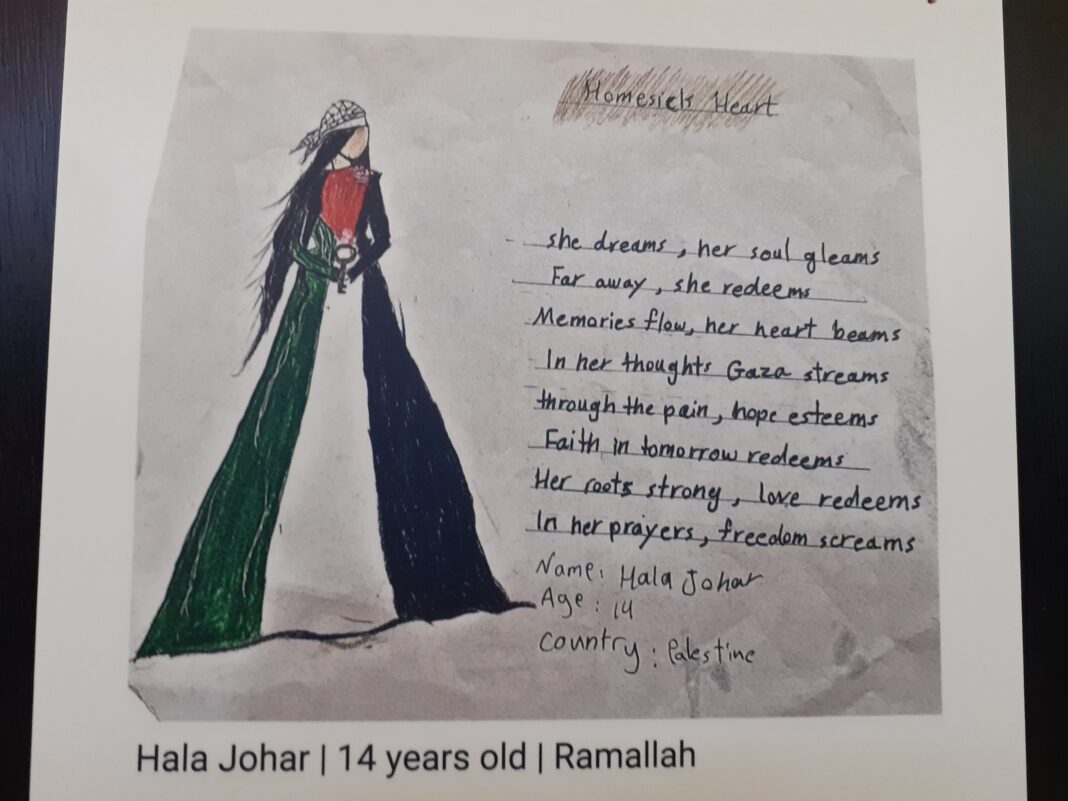 Homesick Heart
she dreams, her soul gleams
Far away, she redeems
Memories flow, her heart beams
In her thoughts Gaza streams
through the pain, hope esteems
Faith in tomorrow redeems
Her roots strong, love redeems
In her prayers, freedom screams
Name: Hala Johar
Age: 14
Country: Palestine
Hala Johar | 14 years old | Ramallah